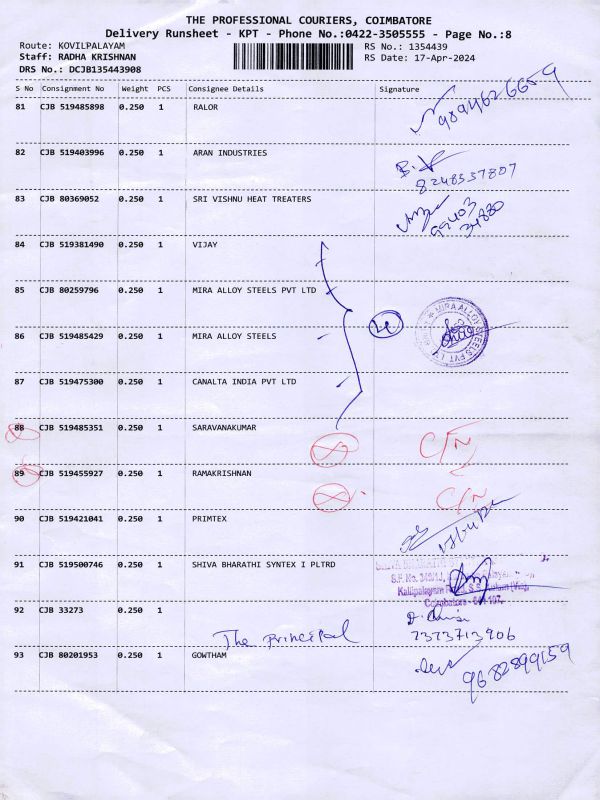 THE PROFESSIONAL COURIERS, COIMBATORE
Delivery Runsheet - KPT - Phone No.:0422-3505555 - Page No.:8
Route: KOVILPALAYAM
RS No.: 1354439
Staff: RADHA KRISHNAN
RS Date: 17-Apr-2024
DRS No.: DCJB135443908
S No Consignment No Weight PCS Consignee Details Signature
81 CJB 519485898 0.250 1 RALOR
9894626659
82 CJB 519403996 0.250 1 ARAN INDUSTRIES
8248537807
83 CJB 80369052 0.250 1 SRI VISHNU HEAT TREATERS
99403
34830
84 CJB 519381490 0.250 1 VIJAY
85 CJB 80259796 0.250 1 MIRA ALLOY STEELS PVT LTD
MIRA ALLOY STEELS PVT. LTD
86 CJB 519485429 0.250 1 MIRA ALLOY STEELS
87 CJB 519475300 0.250 1 CANALTA INDIA PVT LTD
88 CJB 519485351 0.250 1 SARAVANAKUMAR
C/N
89 CJB 519455927 0.250 1 RAMAKRISHNAN
C/N
90 CJB 519421041 0.250 1 PRIMTEX
91 CJB 519500746 0.250 1 SHIVA BHARATHI SYNTEX I PLTRD
SHIVA BHARATHI
S.F. No.
Coimbatore - 641 107.
92 CJB 33273 0.250 1
The Principal
7373713906
93 CJB 80201953 0.250 1 GOWTHAM
9682899159